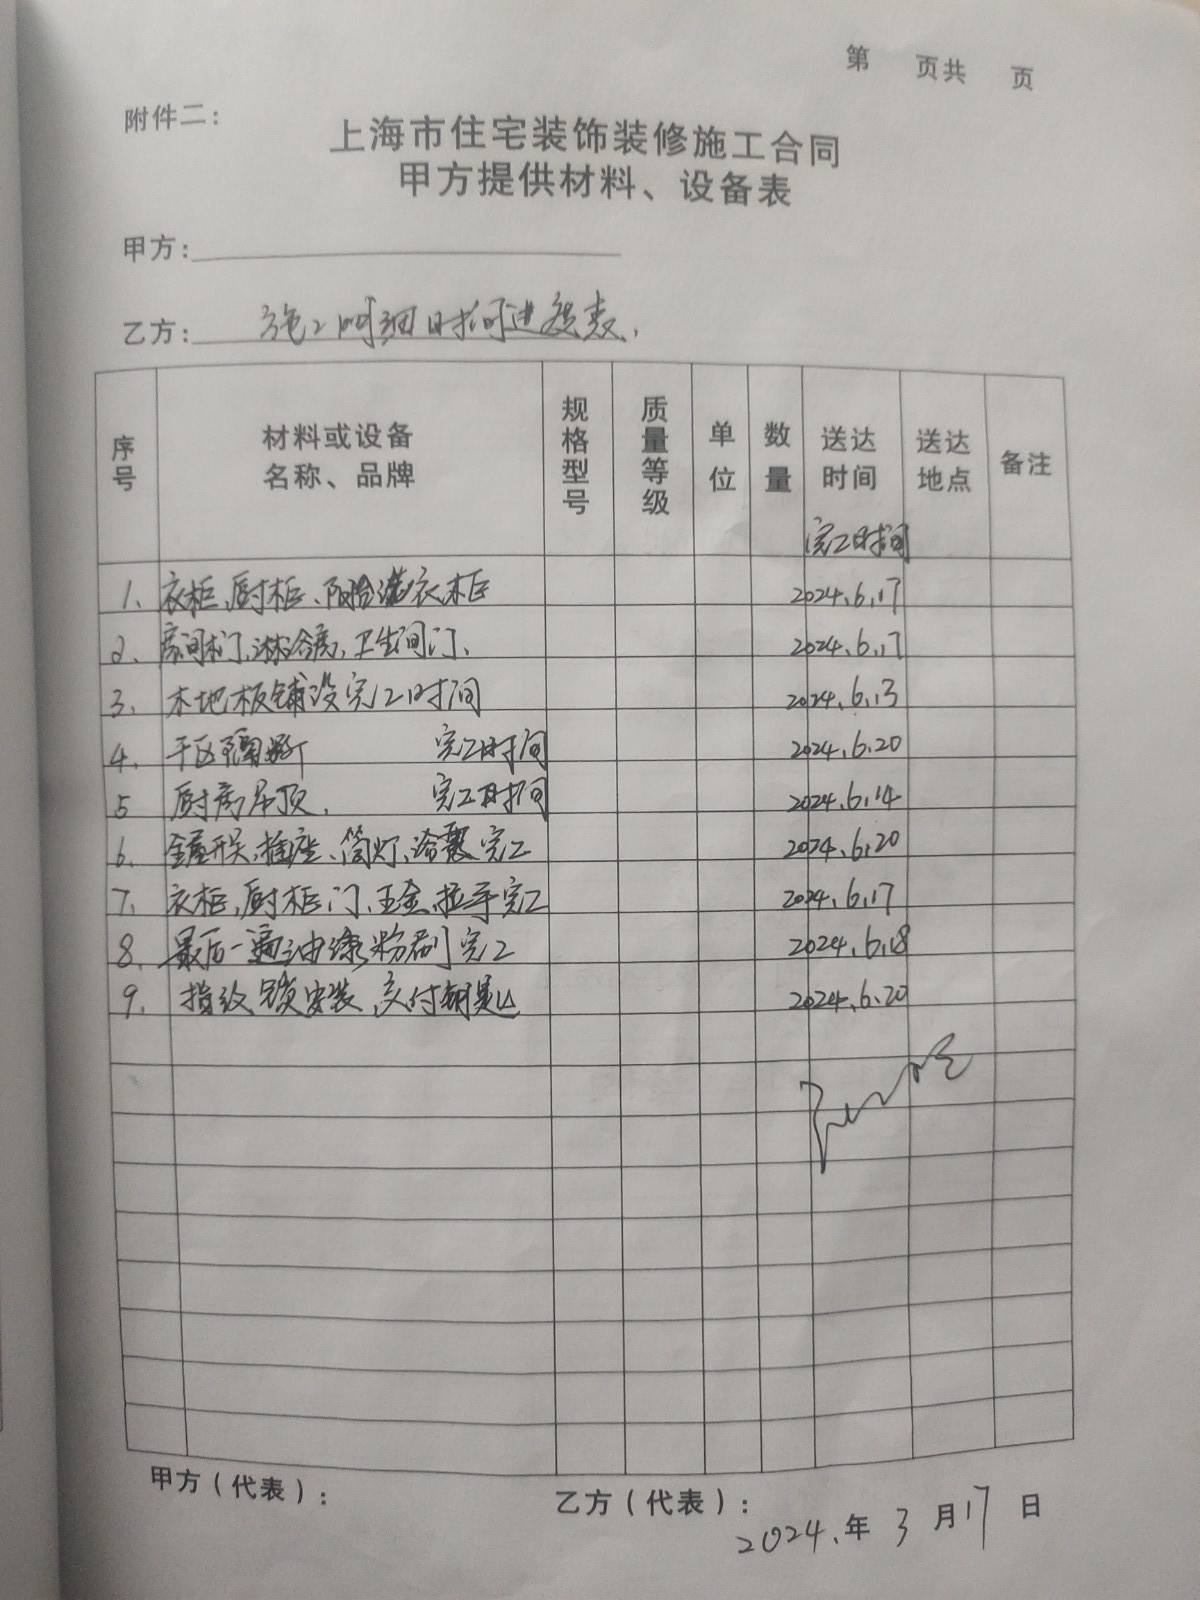 第 页共 页
附件二：
上海市住宅装饰装修施工合同
甲方提供材料、设备表
甲方：
乙方：施工明细时间进度表.
序号 材料或设备名称、品牌 规格型号 质量等级 单位 数量 送达时间 送达地点 备注
完工时间
1、衣柜、厨柜、阳台洗衣柜 2024.6.17
2、房间木门、淋浴房、卫生间门、 2024.6.17
3、木地板铺设完工时间 2024.6.13
4、干区隔断 完工时间 2024.6.20
5 厨房吊顶. 完工时间 2024.6.14
6、全屋开关、插座、筒灯、浴霸完工 2024.6.20
7、衣柜、厨柜门、五金、拉手完工 2024.6.17
8、最后一遍油漆粉刷完工 2024.6.18
9、指纹锁安装、交付钥匙 2024.6.20
甲方（代表）： 乙方（代表）：
2024.年 3 月 17 日